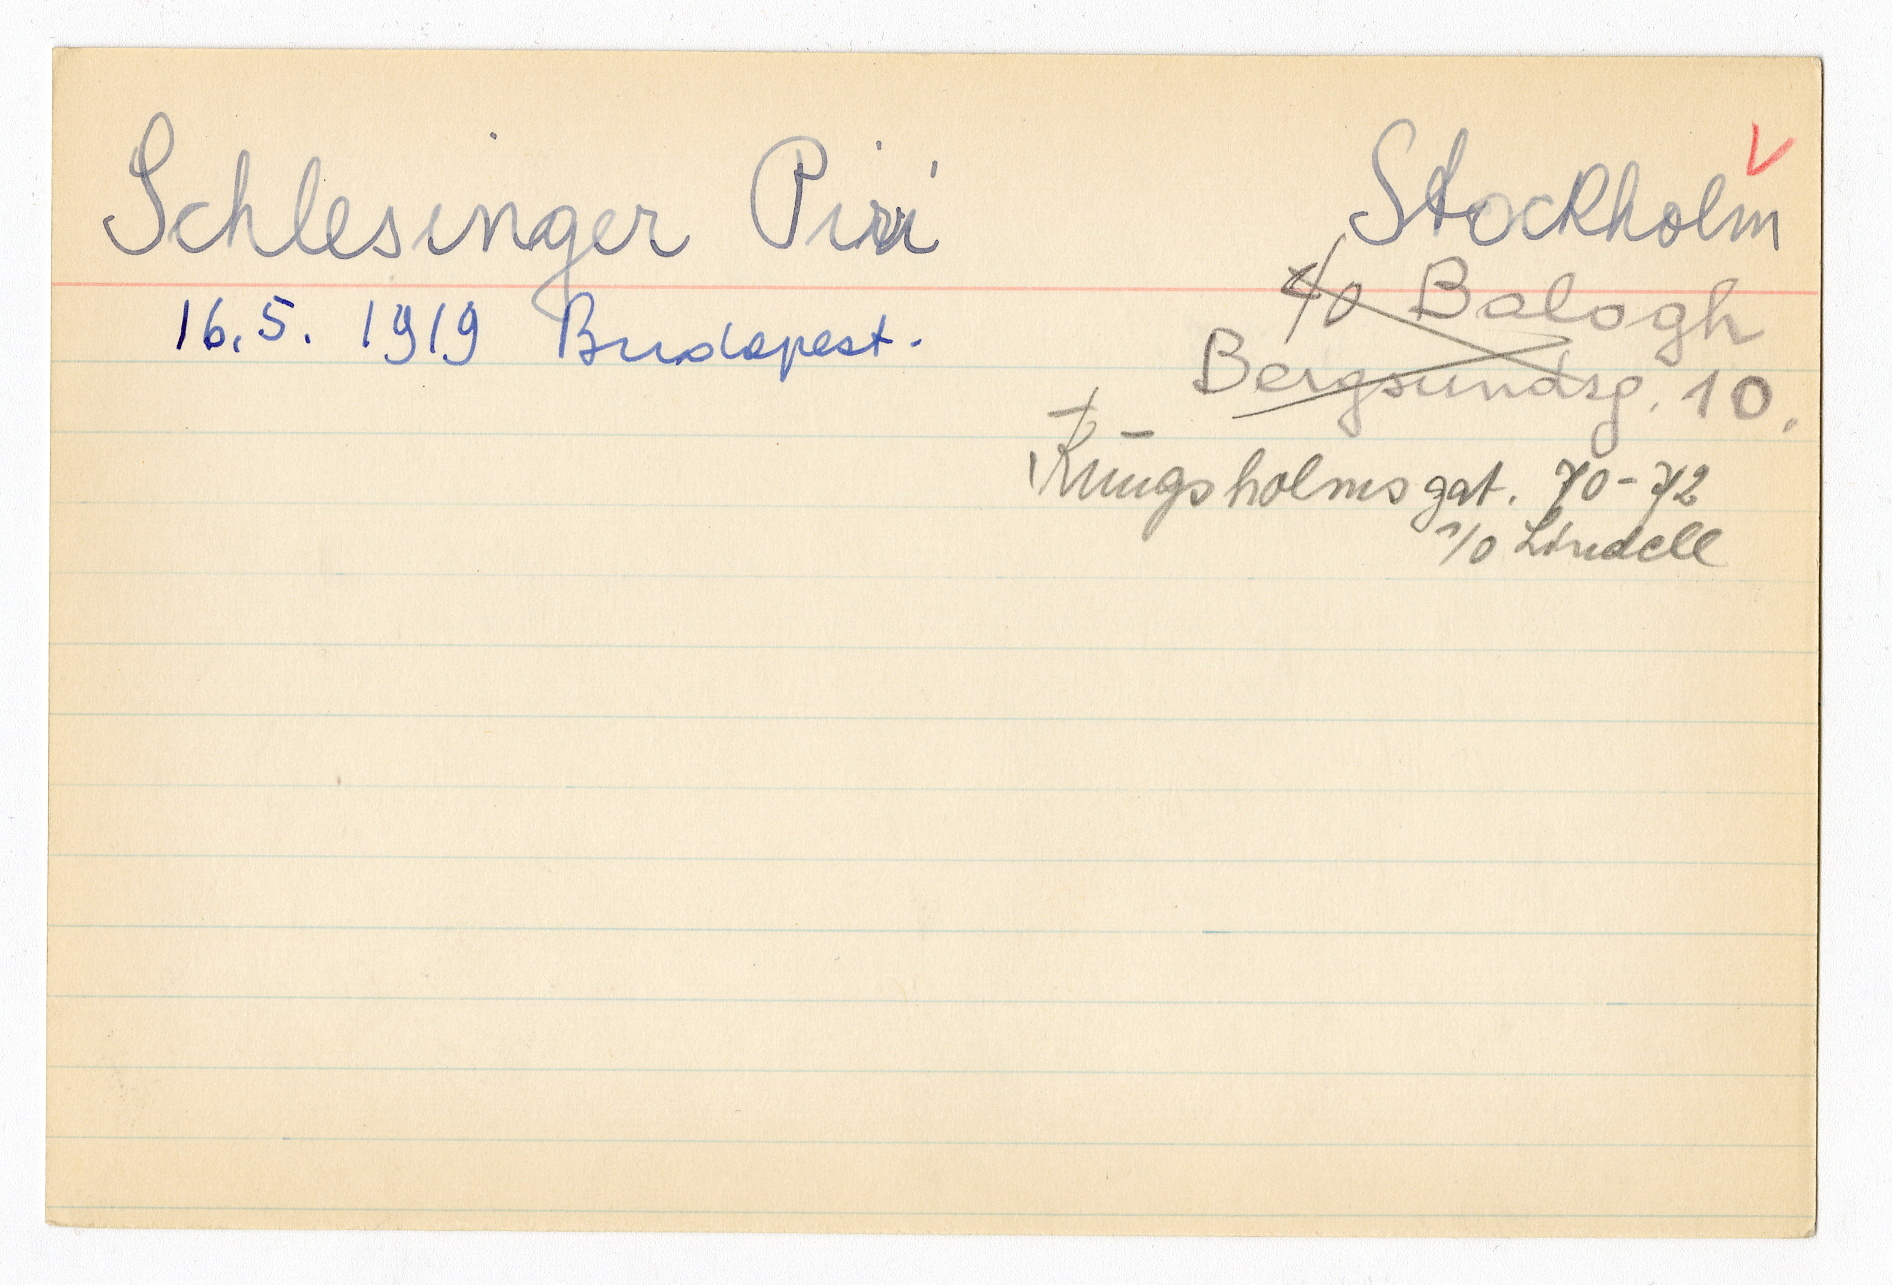 Schlesinger Piri Stockholm
16.5. 1919 Budapest.
c/o Balogh
Bergsundsg. 10.
Kungsholmsgat. 70-72
c/o Lindell